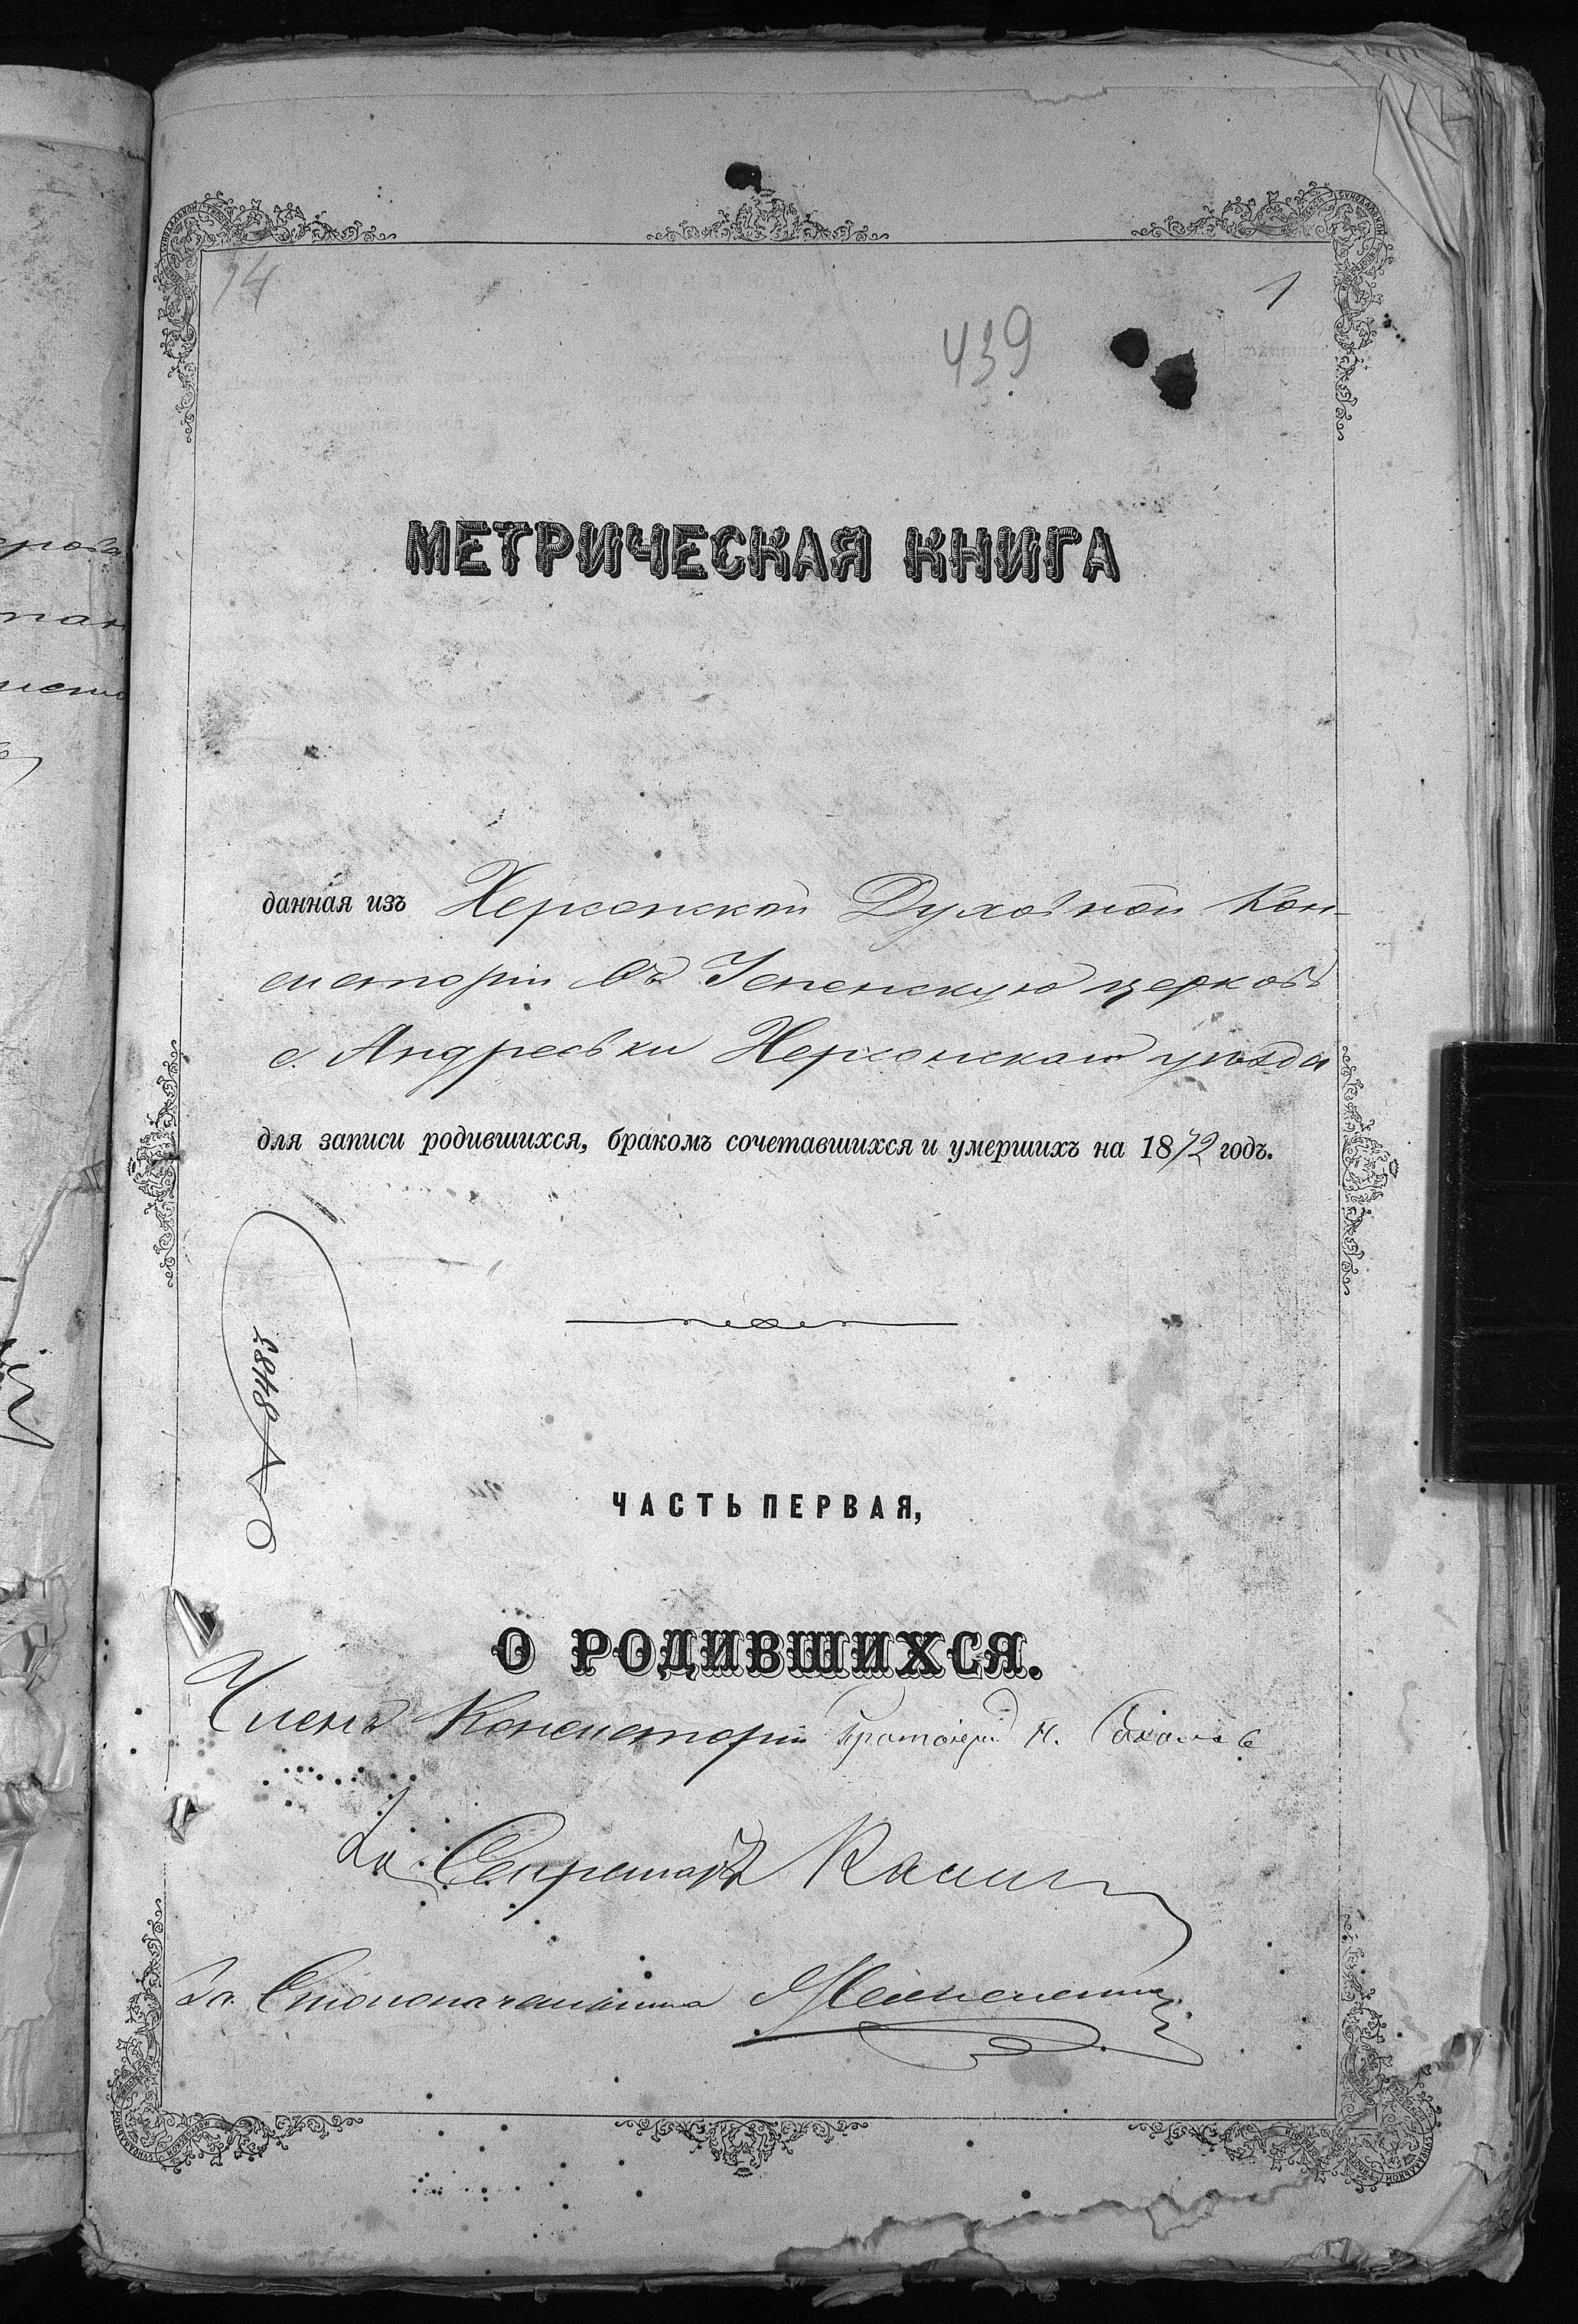 14
1
439
МЕТРИЧЕСКАЯ КНИГА
данная изъ Херсонской Духовной Кон-
систоріи въ Успенскую церковь
с. Андреевки Херсонскаго уѣзда
для записи родившихся, бракомъ сочетавшихся и умершихъ на 1872 годъ.
№ 8483
ЧАСТЬ ПЕРВАЯ,
О РОДИВШИХСЯ.
Членъ Консисторіи Протоіерей Н.
За Секретаря
За Столоначальника